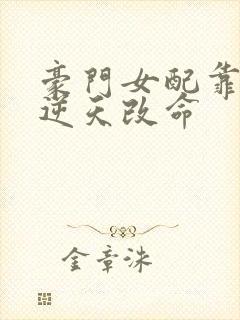 豪門女配靠
逆天改命
金章洙